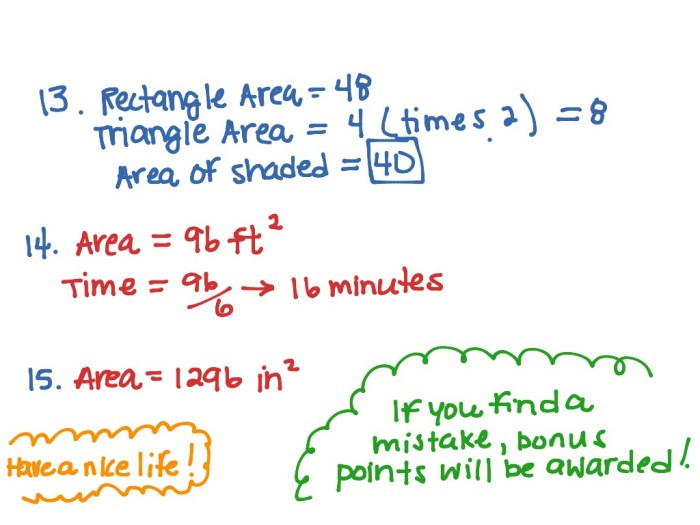 13. Rectangle Area = 48
Triangle Area = 4 (times 2) = 8
Area of shaded = 40
14. Area = 96 ft²
Time = 96/6 → 16 minutes
15. Area = 1296 in²
If you find a
mistake, bonus
points will be awarded!
Have a nice life!